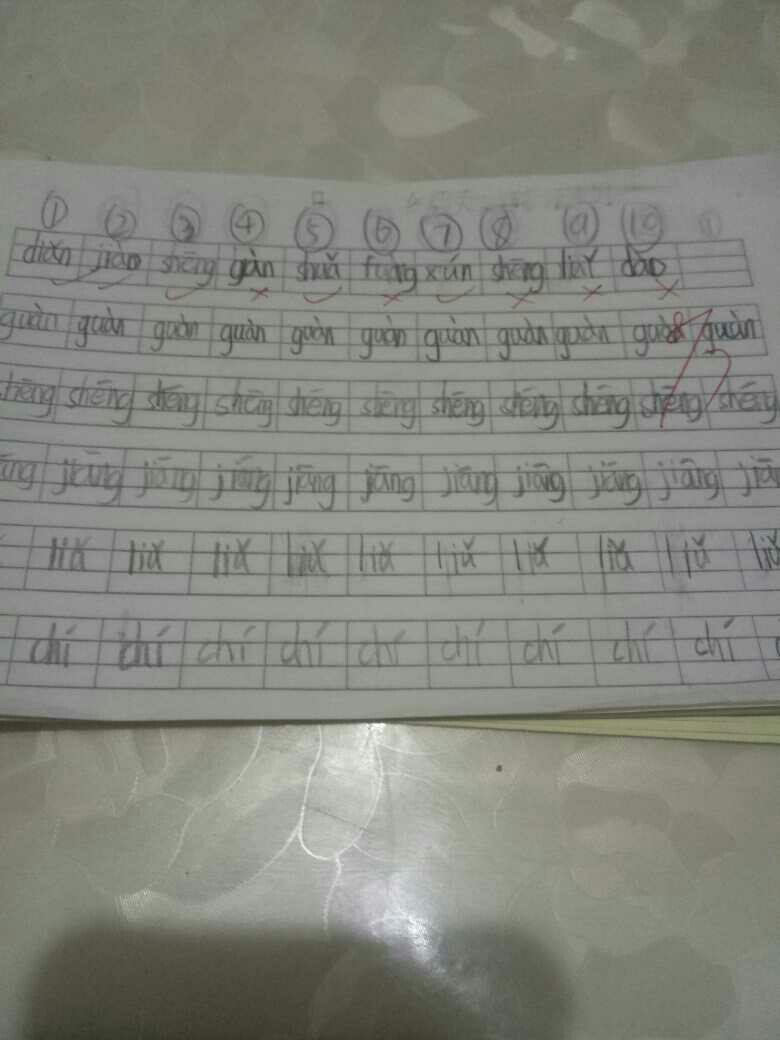 ① ② ③ ④ ⑤ ⑥ ⑦ ⑧ ⑨ ⑩
diǎn jiào shēng gàn shuǎ xún shēng dào
guàn guàn guàn guàn guàn guàn guàn guàn guàn guàn
shēng shēng shēng shēng shēng shēng shēng shēng shēng shēng shēng
jiāng jiāng jiāng jiāng jiāng jiāng jiāng jiāng jiāng
liǎ liǎ liǎ liǎ liǎ liǎ liǎ liǎ liǎ
chí chí chí chí chí chí chí chí chí